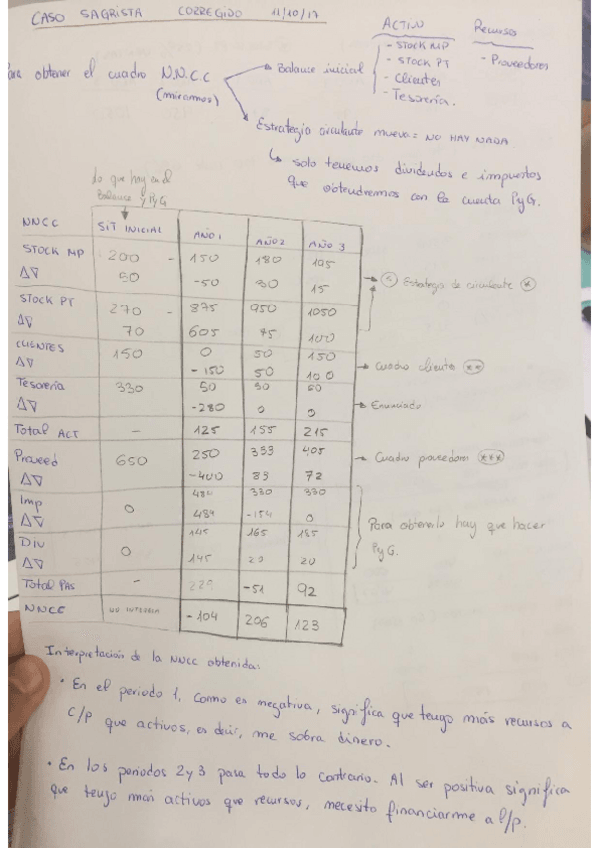 CASO SAGRISTA CORREGIDO 11/10/17
ACTIVO Recursos
- STOCK MP - Proveedores
- STOCK PT
- Clientes
- Tesorería.
Para obtener el cuadro N.N.C.C → Balance inicial
(miramos)
Estrategia circulante nueva = NO HAY NADA
↳ solo tenemos dividendos e impuestos
que obtendremos con la cuenta PyG.
lo que hay en el
Balance y PyG
NNCC SIT INICIAL AÑO 1 AÑO 2 AÑO 3
STOCK MP 200 - 150 180 195
Δ∇ 50 -50 30 15
→ Estrategia de circulante (*)
STOCK PT 270 - 875 950 1050
Δ∇ 70 605 75 100
CLIENTES 150 0 50 150
Δ∇ -150 50 100
→ Cuadro cliente (**)
Tesorería 330 50 50 50
Δ∇ -280 0 0
→ Enunciado
Total ACT - 125 155 215
Proveed 650 250 333 405
Δ∇ -400 83 72
→ Cuadro proveedores (***)
Imp 0 484 330 330
Δ∇ 484 -154 0
DIV 0 145 165 185
Δ∇ 145 20 20
Para obtenerlo hay que hacer
PyG.
Total PAS - 229 -51 92
NNCC NO INTERESA -104 206 123
Interpretación de la NNCC obtenida:
• En el periodo 1, como es negativa, significa que tengo más recursos a
c/p que activos, es decir, me sobra dinero.
• En los periodos 2 y 3 pasa todo lo contrario. Al ser positiva significa
que tengo más activos que recursos, necesito financiarme a l/p.